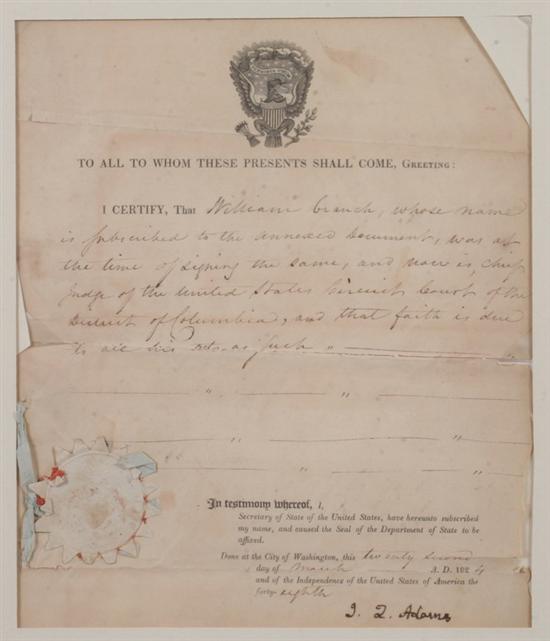 TO ALL TO WHOM THESE PRESENTS SHALL COME, GREETING:
I CERTIFY, That William Cranch, whose name
is subscribed to the annexed Document, was at
the time of signing the same, and now is chief
Judge of the United States Circuit Court of the
District of Columbia, and that faith is due
to all his Acts as such "
" "
" "
" "
In testimony whereof, I,
Secretary of State of the United States, have hereunto subscribed
my name, and caused the Seal of the Department of State to be
affixed.
Done at the City of Washington, this twenty second
day of March A. D. 1824
and of the Independence of the United States of America the
forty-eighth
J. Q. Adams